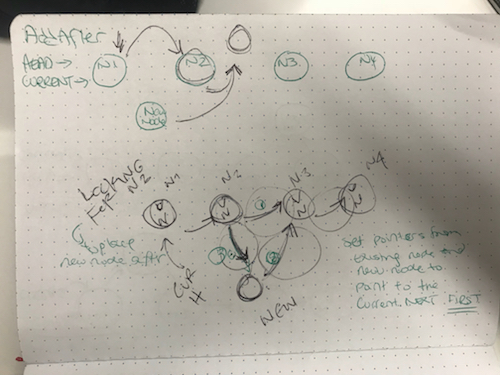 AddAfter
HEAD →
CURRENT →
N1
N2
N3
N4
New
Node
LOOKING
FOR N2
N1
N2
N3
N4
to place
new node after
CUR
H
NEW
Set pointers from
existing node and
new-node to
point to the
Current.NEXT FIRST